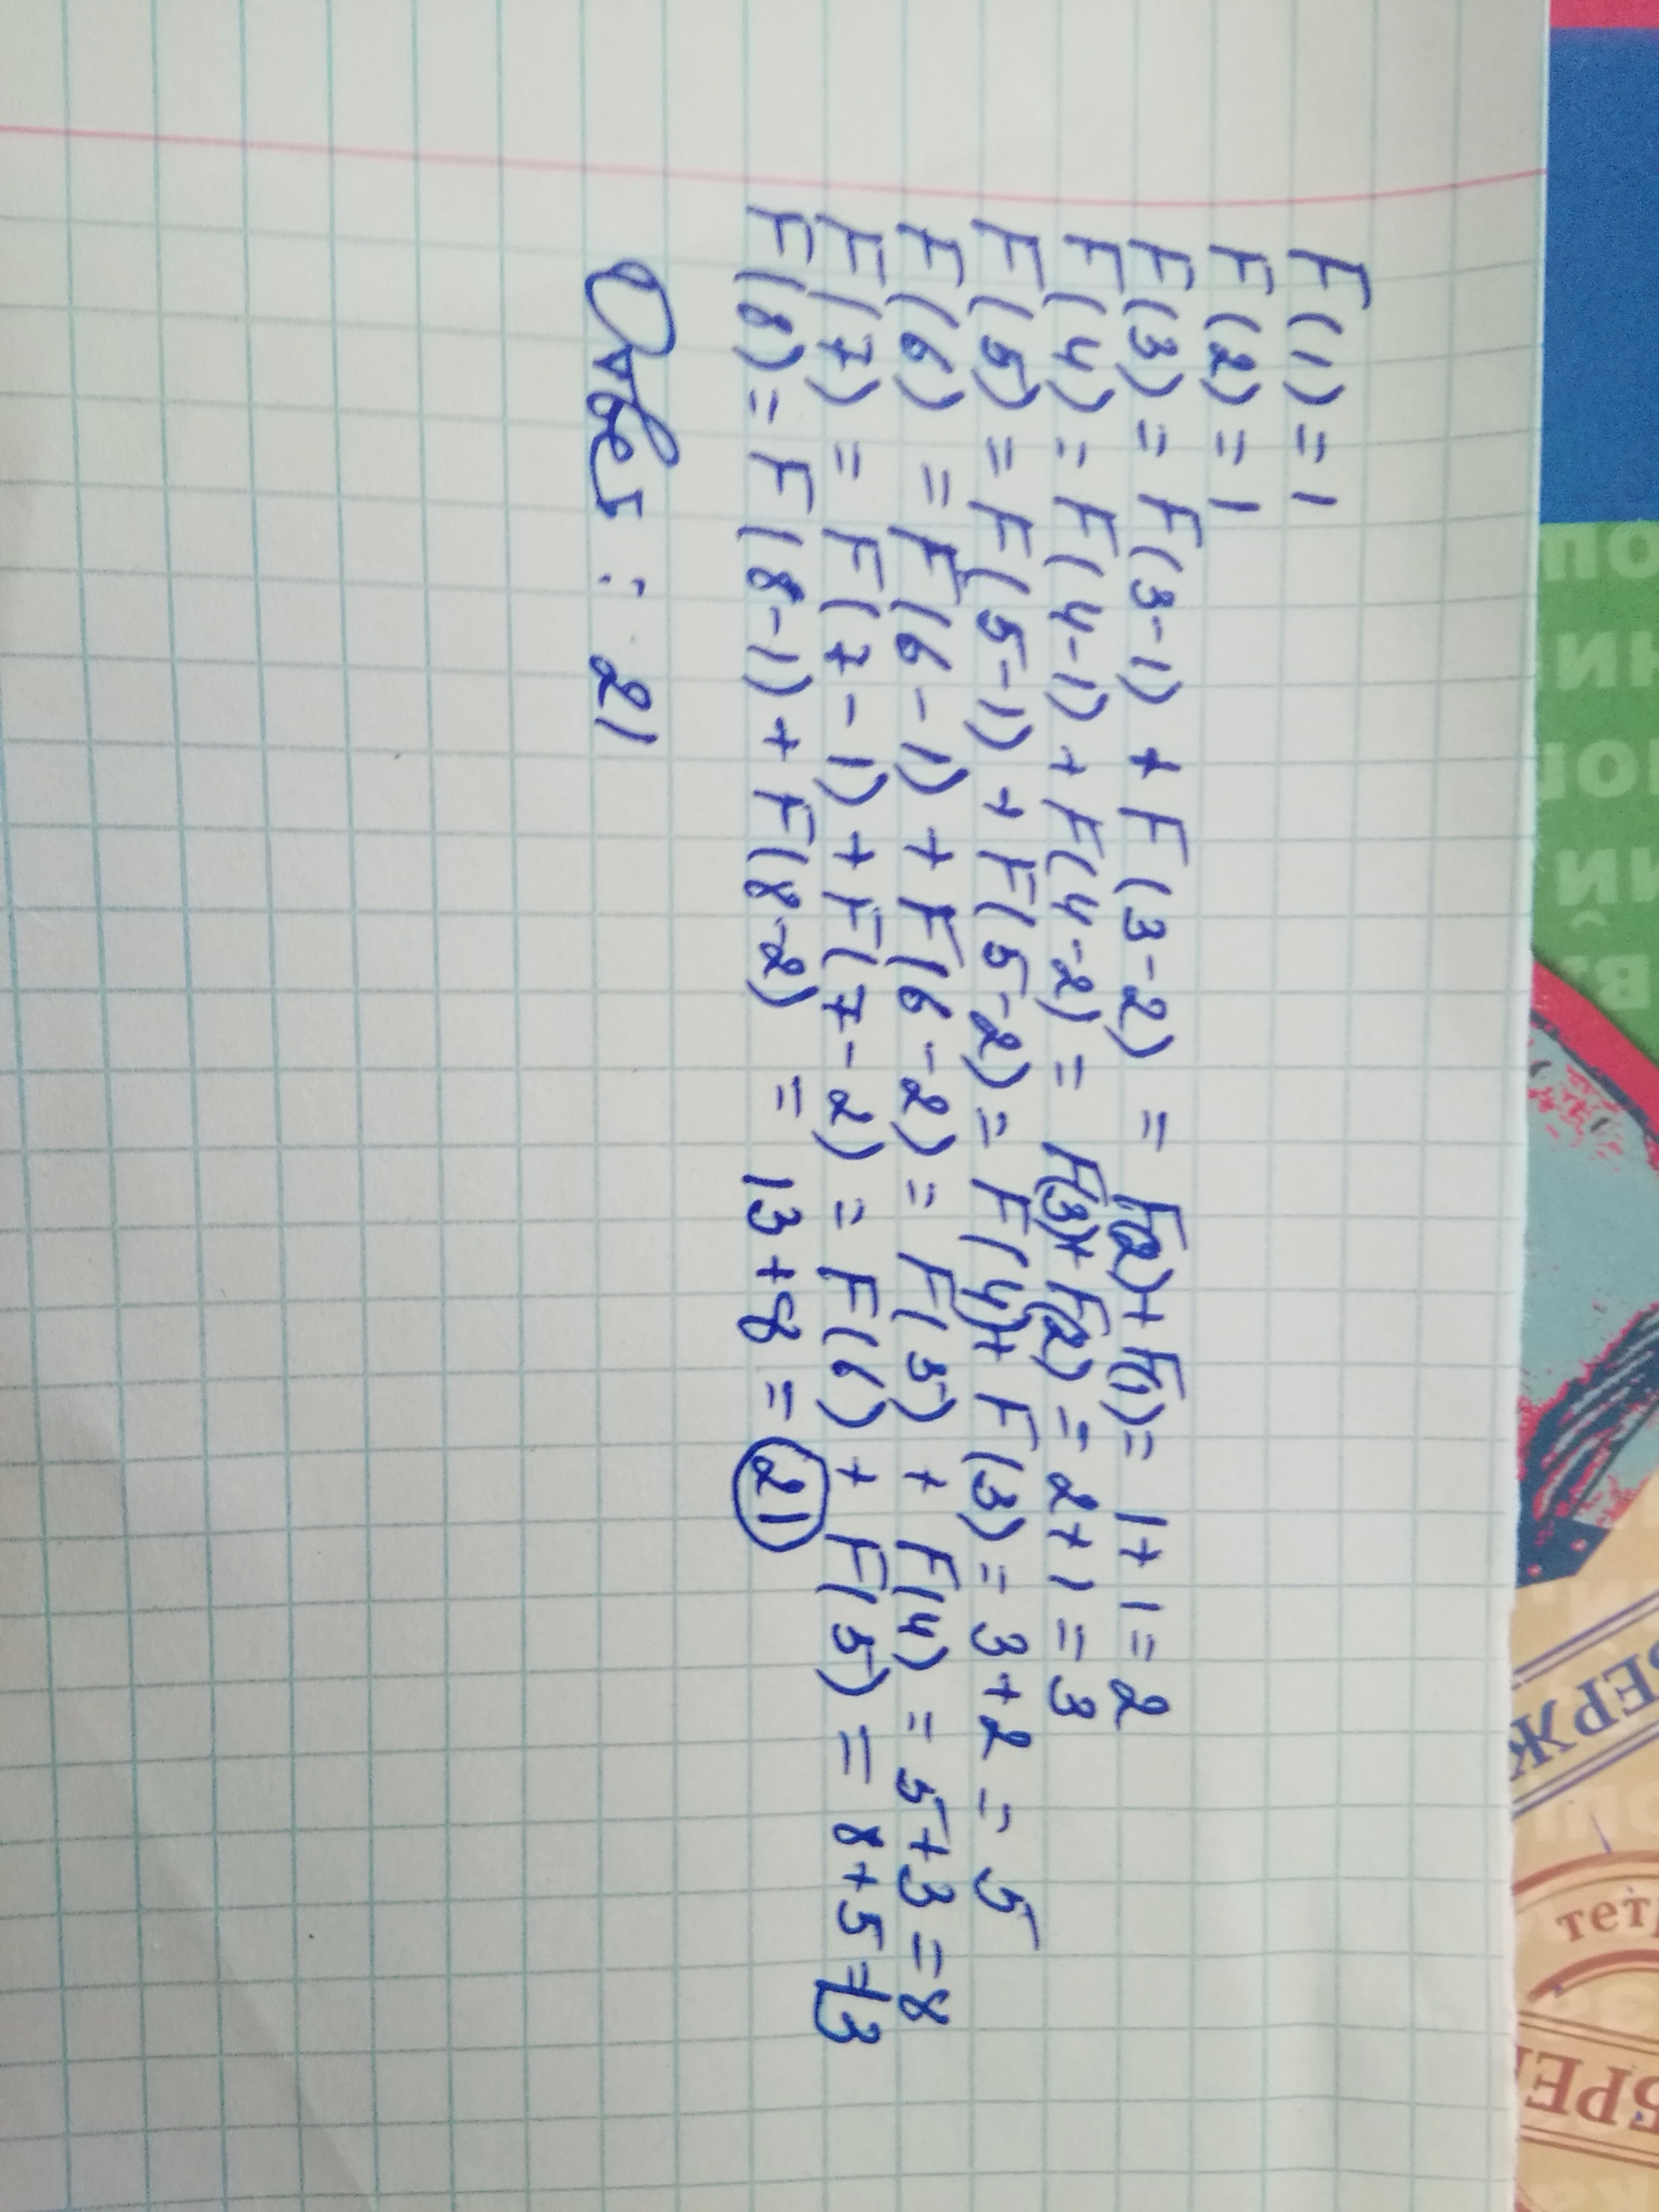 F(1) = 1
F(2) = 1
F(3) = F(3-1) + F(3-2) = F(2)+F(1)= 1+1=2
F(4) = F(4-1)+F(4-2) = F(3)+F(2) = 2+1=3
F(5) = F(5-1)+F(5-2)= F(4)+F(3)=3+2=5
F(6) = F(6-1)+F(6-2)= F(5)+F(4)=5+3=8
F(7) = F(7-1)+F(7-2)=F(6)+F(5)=8+5=13
F(8)=F(8-1)+F(8-2) = 13+8=21
Ответ: 21